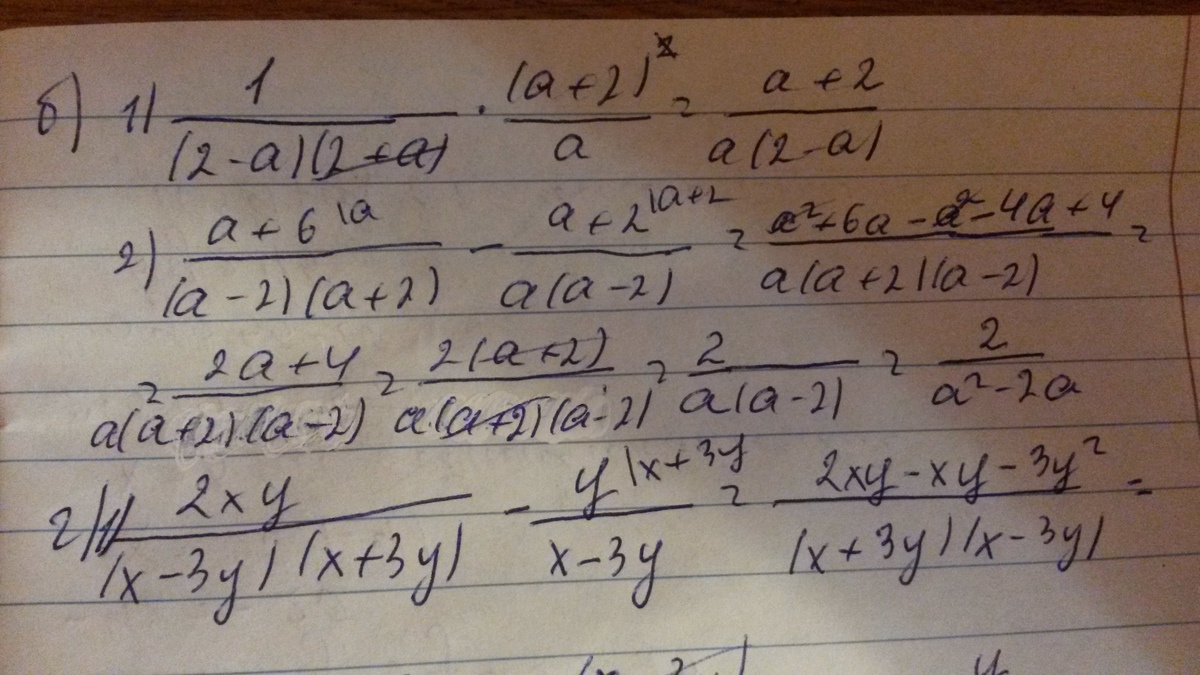 б) 1) 1/((2-a)(2+a)) · (a+2)²/a = (a+2)/(a(2-a))
2) (a+6)^{\a}/((a-2)(a+2)) - (a+2)^{\a+2}/(a(a-2)) = (a²+6a-a²-4a+4)/(a(a+2)(a-2)) =
= (2a+4)/(a(a+2)(a-2)) = 2(a+2)/(a(a+2)(a-2)) = 2/(a(a-2)) = 2/(a²-2a)
г) 1) 2xy/((x-3y)(x+3y)) - y^{\x+3y}/(x-3y) = (2xy-xy-3y²)/((x+3y)(x-3y)) =